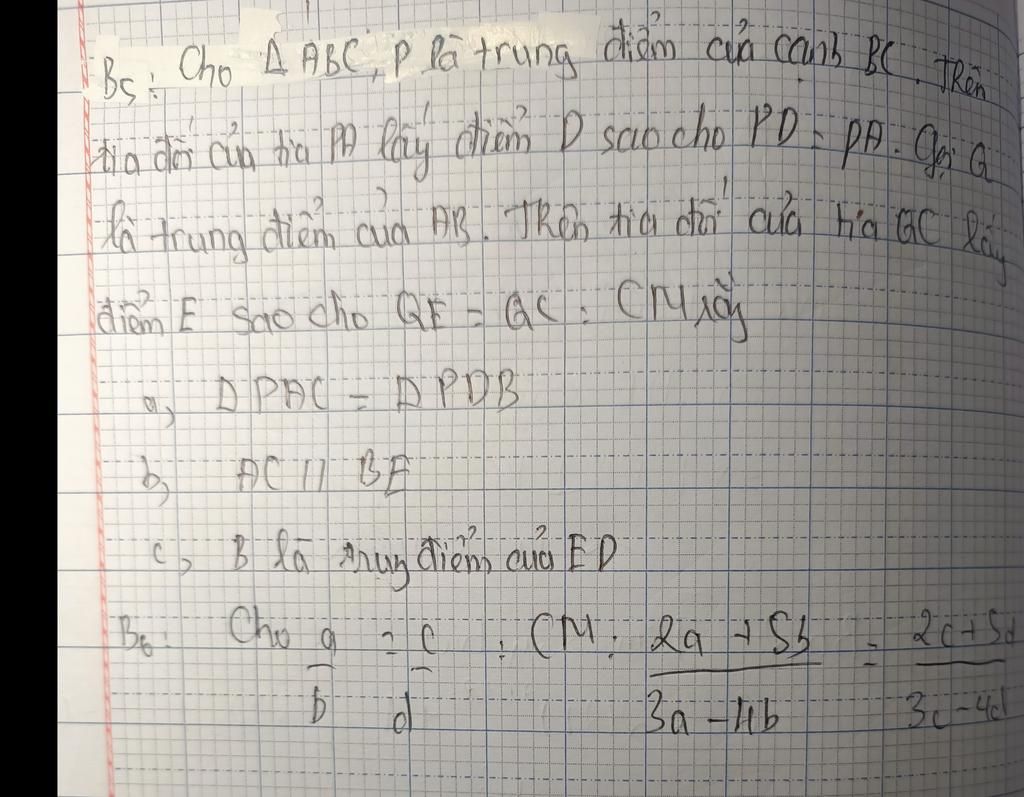 B5: Cho Δ ABC, P là trung điểm của cạnh BC. Trên
tia đối của tia PA lấy điểm D sao cho PD = PA. Gọi Q
là trung điểm của AB. Trên tia đối của tia QC lấy
điểm E sao cho QE = QC : CM rằng
a, Δ PAC = Δ PDB
b, AC // BE
c, B là trung điểm của ED
B6: Cho a/b = c/d : CM: (2a + 5b)/(3a - 4b) = (2c + 5d)/(3c - 4d)